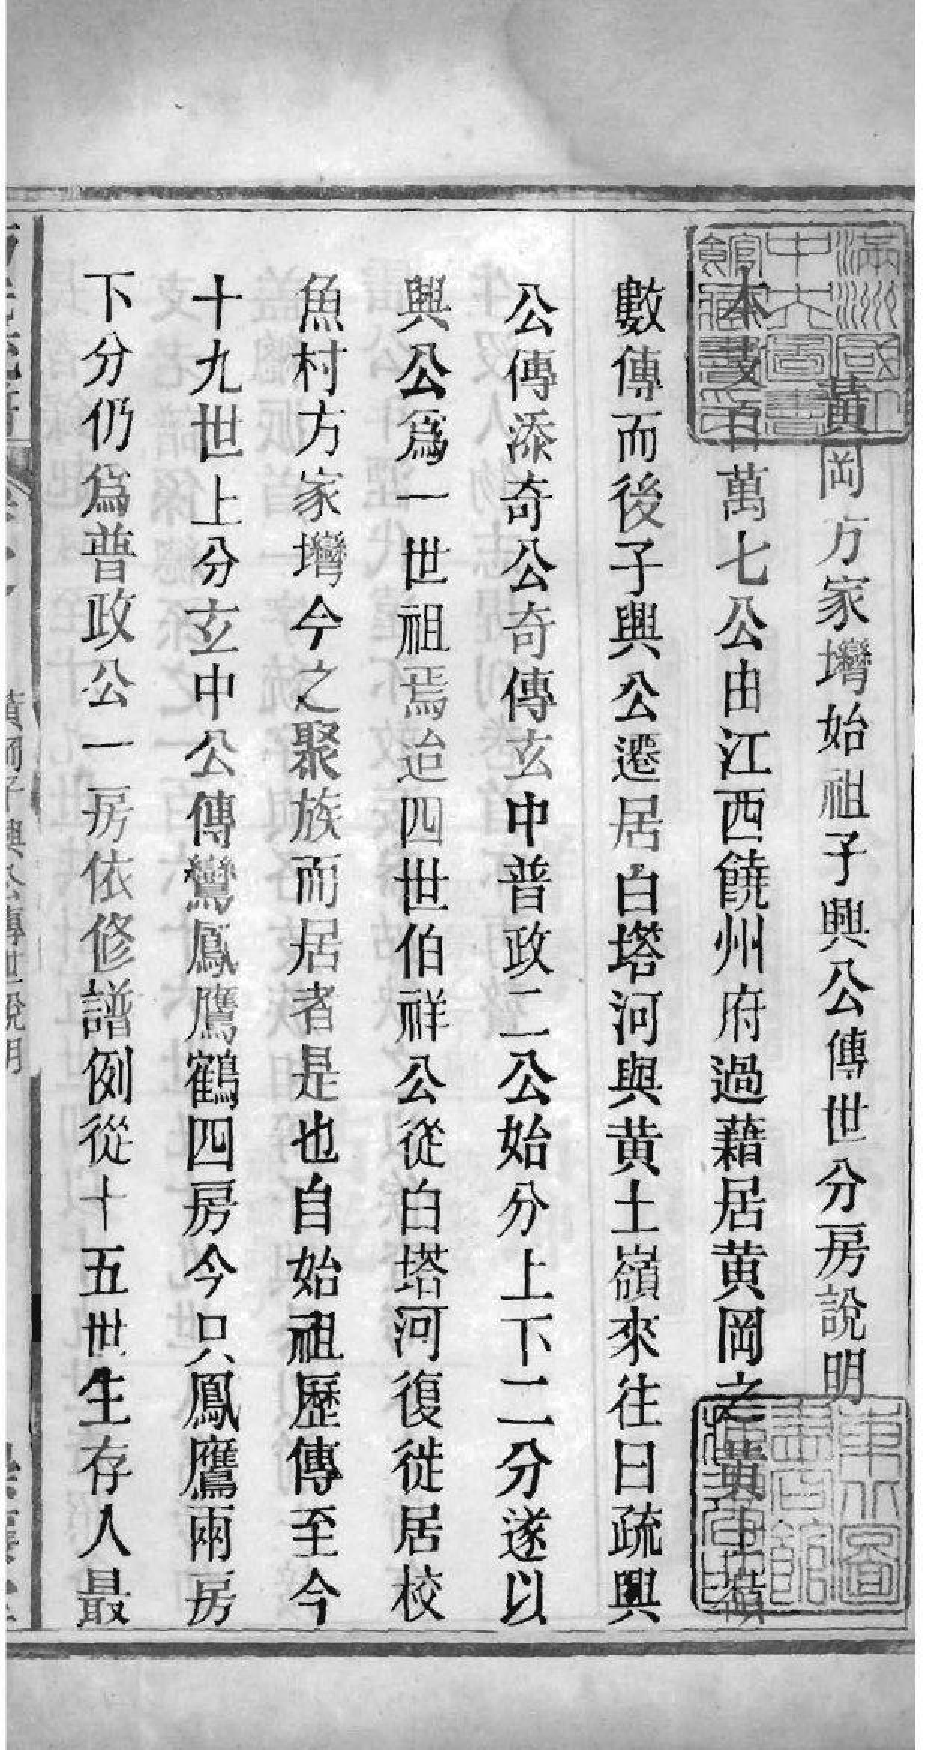 黃岡方家壪始祖子興公傳世分房說明
本支百萬七公由江西饒州府過藉居黃岡之黃土嶺
數傳而後子興公遷居白塔河與黃土嶺來往日疏興
公傳添奇公奇傳玄中普政二公始分上下二分遂以
興公爲一世祖焉迨四世伯祥公從白塔河復徙居校
魚村方家壪今之聚族而居者是也自始祖歷傳至今
十九世上分玄中公傳鸞鳳鷹鶴四房今只鳳鷹兩房
下分仍爲普政公一房依修譜例從十五世生存人最
黃岡子興公傳世說明
滿洲國立中央圖書館藏書印